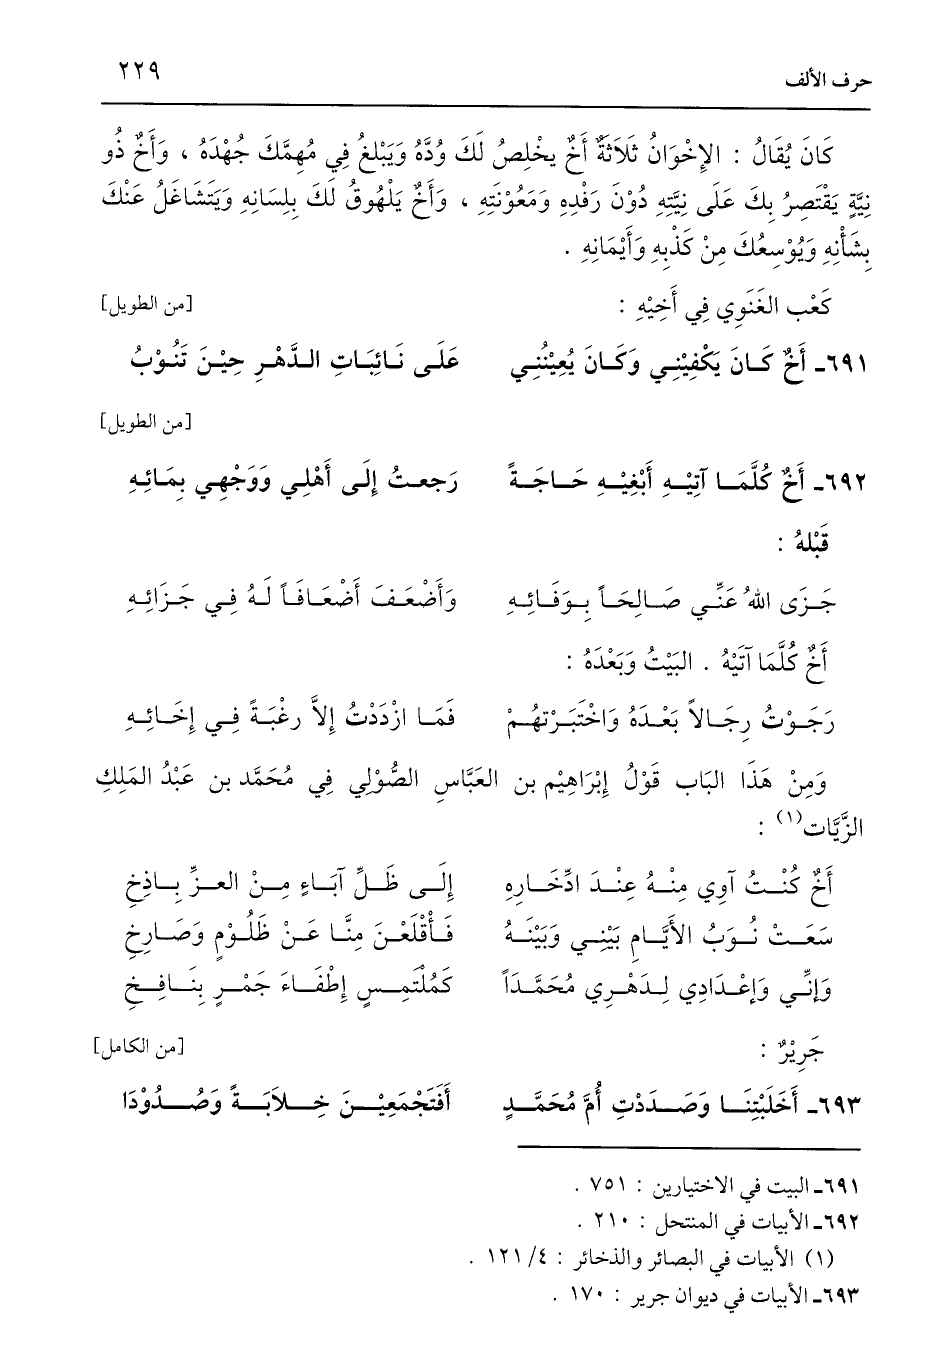 حرف الألف ٢٢٩
كَانَ يُقَالُ : الإِخْوَانُ ثَلَاثَةٌ أَخٌ يخْلِصُ لَكَ وُدَّهُ وَيَبْلغُ فِي مُهِمَّكَ جُهْدَهُ ، وَأَخٌ ذُو
نِيَّةٍ يَقْتَصِرُ بِكَ عَلَى نِيَّتِهِ دُوْنَ رَفْدِهِ وَمَعُوْنَتِهِ ، وَأَخٌ يَلْهُوقُ لَكَ بِلِسَانِهِ وَيَتَشَاغَلُ عَنْكَ
بِشَأْنِهِ وَيُوْسِعُكَ مِنْ كَذْبِهِ وَأَيْمَانِهِ .
كَعْب الغَنَوِي فِي أَخِيْهِ : [من الطويل]
٦٩١ـ أَخٌ كَانَ يَكْفِيْنِي وَكَانَ يُعِيْنُنِي عَلَى نَائِبَاتِ الدَّهْرِ حِيْنَ تَنُوْبُ
[من الطويل]
٦٩٢ـ أَخٌ كُلَّمَا آتِيْهِ أَبْغِيْهِ حَاجَةً رَجعتُ إِلَى أَهْلِي وَوَجْهِي بِمَائِهِ
قَبْلهُ :
جَزَى اللهُ عَنِّي صَالِحَاً بِوَفَائِهِ وَأَضْعَفَ أَضْعَافَاً لَهُ فِي جَزَائِهِ
أَخٌ كُلَّمَا آتَيْهُ . البَيْتُ وَبَعْدَهُ :
رَجَوْتُ رِجَالاً بَعْدَهُ وَاخْتَبَرْتهُمْ فَمَا ازْدَدْتُ إِلاَّ رغْبَةً فِي إِخَائِهِ
وَمِنْ هَذَا البَاب قَوْلُ إِبْرَاهِيْم بن العَبَّاسِ الصُّوْلِي فِي مُحَمَّد بن عَبْدُ المَلِكِ
الزَّيَّات(١) :
أَخٌ كُنْتُ آوِي مِنْهُ عِنْدَ ادِّخَارِهِ إِلَى ظَلِّ آبَاءٍ مِنْ العزِّ بِاذِخِ
سَعَتْ نُوَبُ الأَيَّامِ بَيْنِي وَبَيْنَهُ فَأَقْلَعْنَ مِنَّا عَنْ ظَلُوْمٍ وَصَارِخِ
وَإِنِّي وَإِعْدَادِي لِدَهْرِي مُحَمَّدَاً كَمُلْتَمِسٍ إِطْفَاءَ جَمْرٍ بِنَافِخِ
جَرِيْرٌ : [من الكامل]
٦٩٣ـ أَخَلَبْتِنَا وَصَدَدْتِ أُمَّ مُحَمَّدٍ أَفَتَجْمَعِيْنَ خِلاَبَةً وَصُدُوْدَا
٦٩١ـ البيت في الاختيارين : ٧٥١ .
٦٩٢ـ الأبيات في المنتحل : ٢١٠ .
(١) الأبيات في البصائر والذخائر : ٤/ ١٢١ .
٦٩٣ـ الأبيات في ديوان جرير : ١٧٠ .